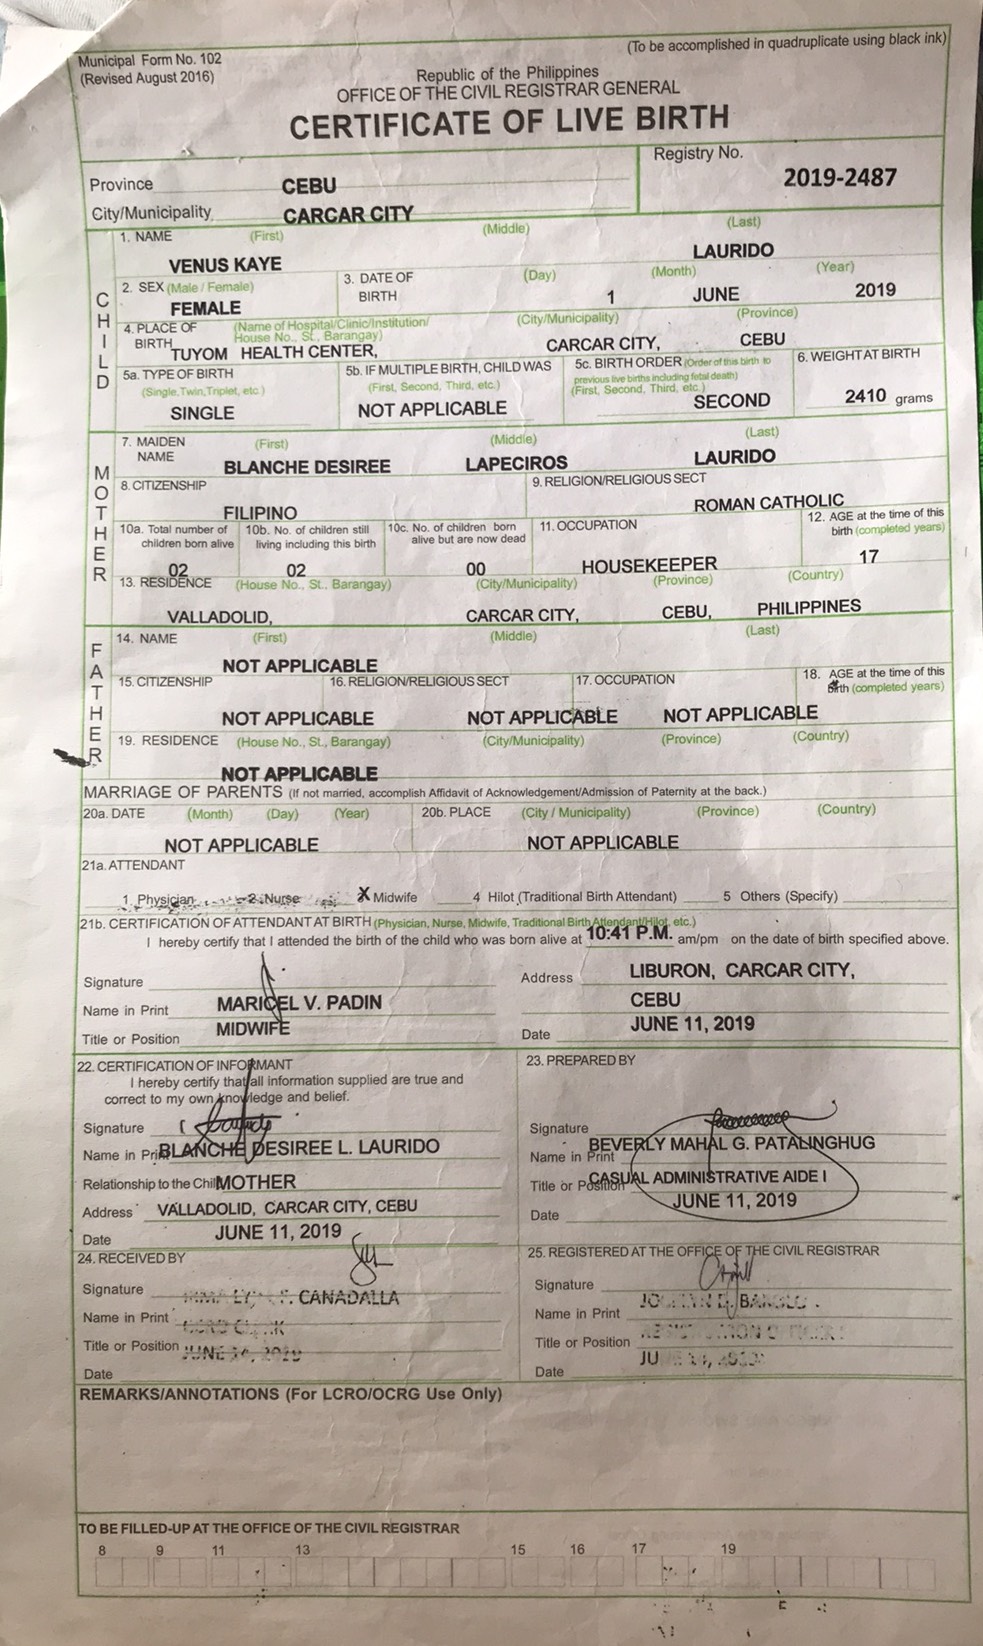 (To be accomplished in quadruplicate using black ink)
Municipal Form No. 102
(Revised August 2016)
Republic of the Philippines
OFFICE OF THE CIVIL REGISTRAR GENERAL
CERTIFICATE OF LIVE BIRTH
Registry No.
Province CEBU 2019-2487
City/Municipality CARCAR CITY
CHILD
1. NAME (First) (Middle) (Last)
VENUS KAYE LAURIDO
2. SEX (Male / Female) 3. DATE OF BIRTH (Day) (Month) (Year)
FEMALE 1 JUNE 2019
4. PLACE OF BIRTH (Name of Hospital/Clinic/Institution/ House No., St., Barangay) (City/Municipality) (Province)
TUYOM HEALTH CENTER, CARCAR CITY, CEBU
5a. TYPE OF BIRTH (Single, Twin, Triplet, etc.) 5b. IF MULTIPLE BIRTH, CHILD WAS (First, Second, Third, etc.) 5c. BIRTH ORDER (Order of this birth to previous live births including fetal death) (First, Second, Third, etc.) 6. WEIGHT AT BIRTH
SINGLE NOT APPLICABLE SECOND 2410 grams
MOTHER
7. MAIDEN NAME (First) (Middle) (Last)
BLANCHE DESIREE LAPECIROS LAURIDO
8. CITIZENSHIP 9. RELIGION/RELIGIOUS SECT
FILIPINO ROMAN CATHOLIC
10a. Total number of children born alive 10b. No. of children still living including this birth 10c. No. of children born alive but are now dead 11. OCCUPATION 12. AGE at the time of this birth (completed years)
02 02 00 HOUSEKEEPER 17
13. RESIDENCE (House No., St., Barangay) (City/Municipality) (Province) (Country)
VALLADOLID, CARCAR CITY, CEBU, PHILIPPINES
FATHER
14. NAME (First) (Middle) (Last)
NOT APPLICABLE
15. CITIZENSHIP 16. RELIGION/RELIGIOUS SECT 17. OCCUPATION 18. AGE at the time of this birth (completed years)
NOT APPLICABLE NOT APPLICABLE NOT APPLICABLE
19. RESIDENCE (House No., St., Barangay) (City/Municipality) (Province) (Country)
NOT APPLICABLE
MARRIAGE OF PARENTS (If not married, accomplish Affidavit of Acknowledgement/Admission of Paternity at the back.)
20a. DATE (Month) (Day) (Year) 20b. PLACE (City / Municipality) (Province) (Country)
NOT APPLICABLE NOT APPLICABLE
21a. ATTENDANT
1 Physician 2 Nurse X Midwife 4 Hilot (Traditional Birth Attendant) 5 Others (Specify)
21b. CERTIFICATION OF ATTENDANT AT BIRTH (Physician, Nurse, Midwife, Traditional Birth Attendant/Hilot, etc.)
I hereby certify that I attended the birth of the child who was born alive at 10:41 P.M. am/pm on the date of birth specified above.
Signature Address LIBURON, CARCAR CITY,
Name in Print MARICEL V. PADIN CEBU
Title or Position MIDWIFE Date JUNE 11, 2019
22. CERTIFICATION OF INFORMANT
I hereby certify that all information supplied are true and
correct to my own knowledge and belief.
Signature
Name in Print BLANCHE DESIREE L. LAURIDO
Relationship to the Child MOTHER
Address VALLADOLID, CARCAR CITY, CEBU
Date JUNE 11, 2019
23. PREPARED BY
Signature
Name in Print BEVERLY MAHAL G. PATALINGHUG
Title or Position CASUAL ADMINISTRATIVE AIDE I
Date JUNE 11, 2019
24. RECEIVED BY
Signature
Name in Print CANADALLA
Title or Position
Date
25. REGISTERED AT THE OFFICE OF THE CIVIL REGISTRAR
Signature
Name in Print
Title or Position
Date
REMARKS/ANNOTATIONS (For LCRO/OCRG Use Only)
TO BE FILLED-UP AT THE OFFICE OF THE CIVIL REGISTRAR
8 9 11 13 15 16 17 19